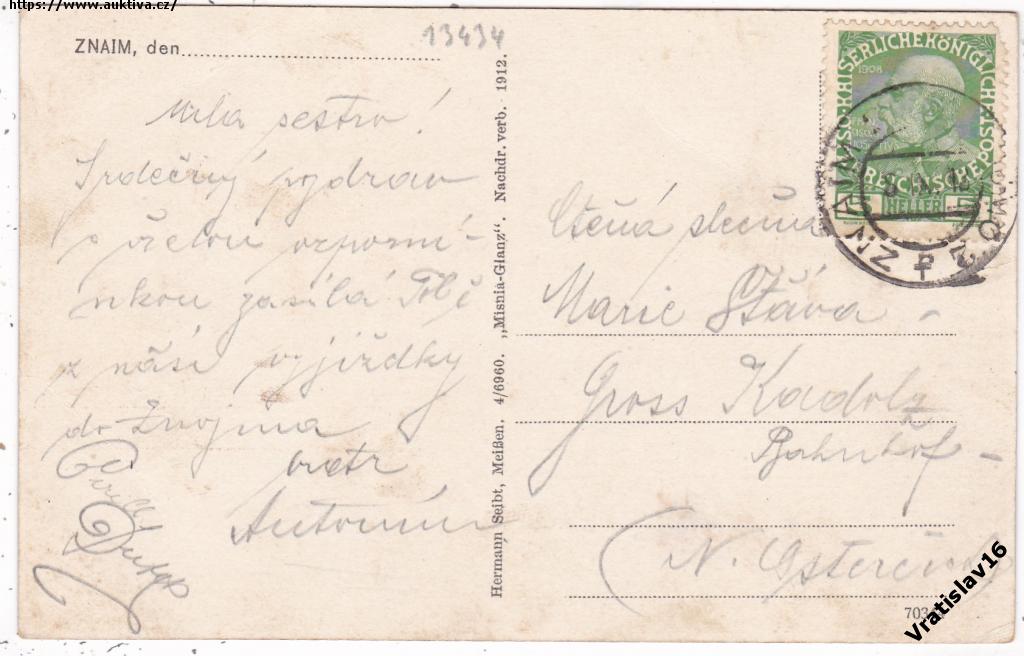 https://www.auktiva.cz/
13434
ZNAIM, den
Milá sestro!
Srdečný pozdrav
s vřelou vzpomí-
nkou zasílá Tobě
z naší vyjížďky
do Znojma
bratr
Antonín
Cyrill
Hermann Seibt, Meißen. 4/6960. „Misnia-Glanz“. Nachdr. verb. 1912.
KAISERLICHE KÖNIGLICHE
ÖSTERREICHISCHE POST
1908
5 HELLER 5
ZNAIM
ZNOJMO
Ctěná slečna
Marie Šťáva -
Gross Kadolz
Bahnhof -
N. Österreich
703
Vratislav16